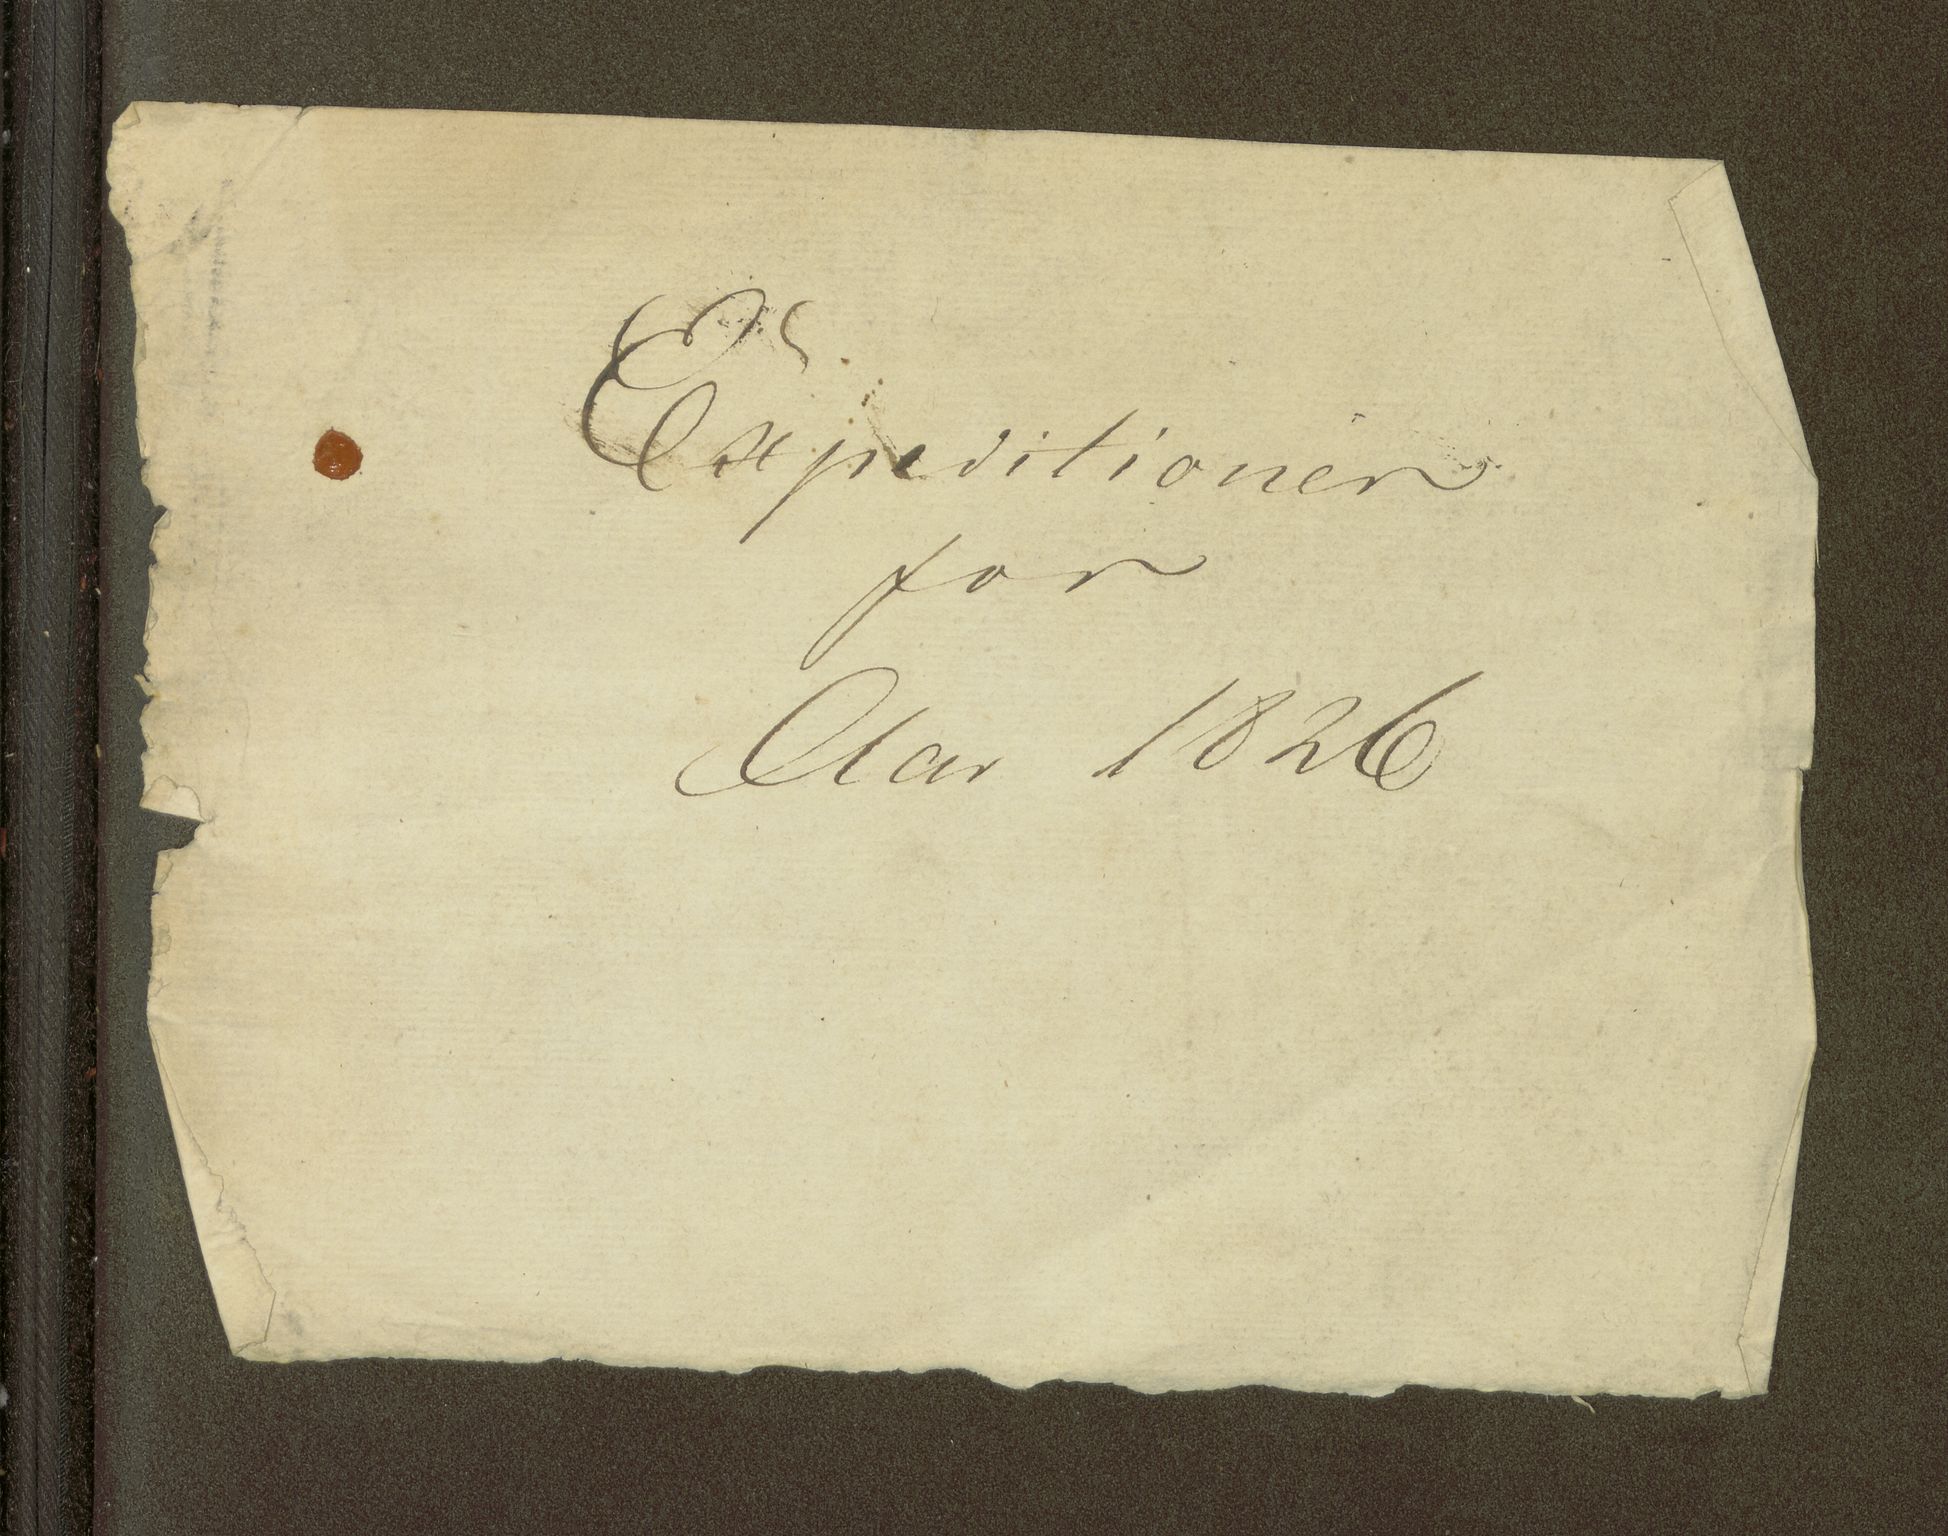 Expeditioner
for
Aar 1826